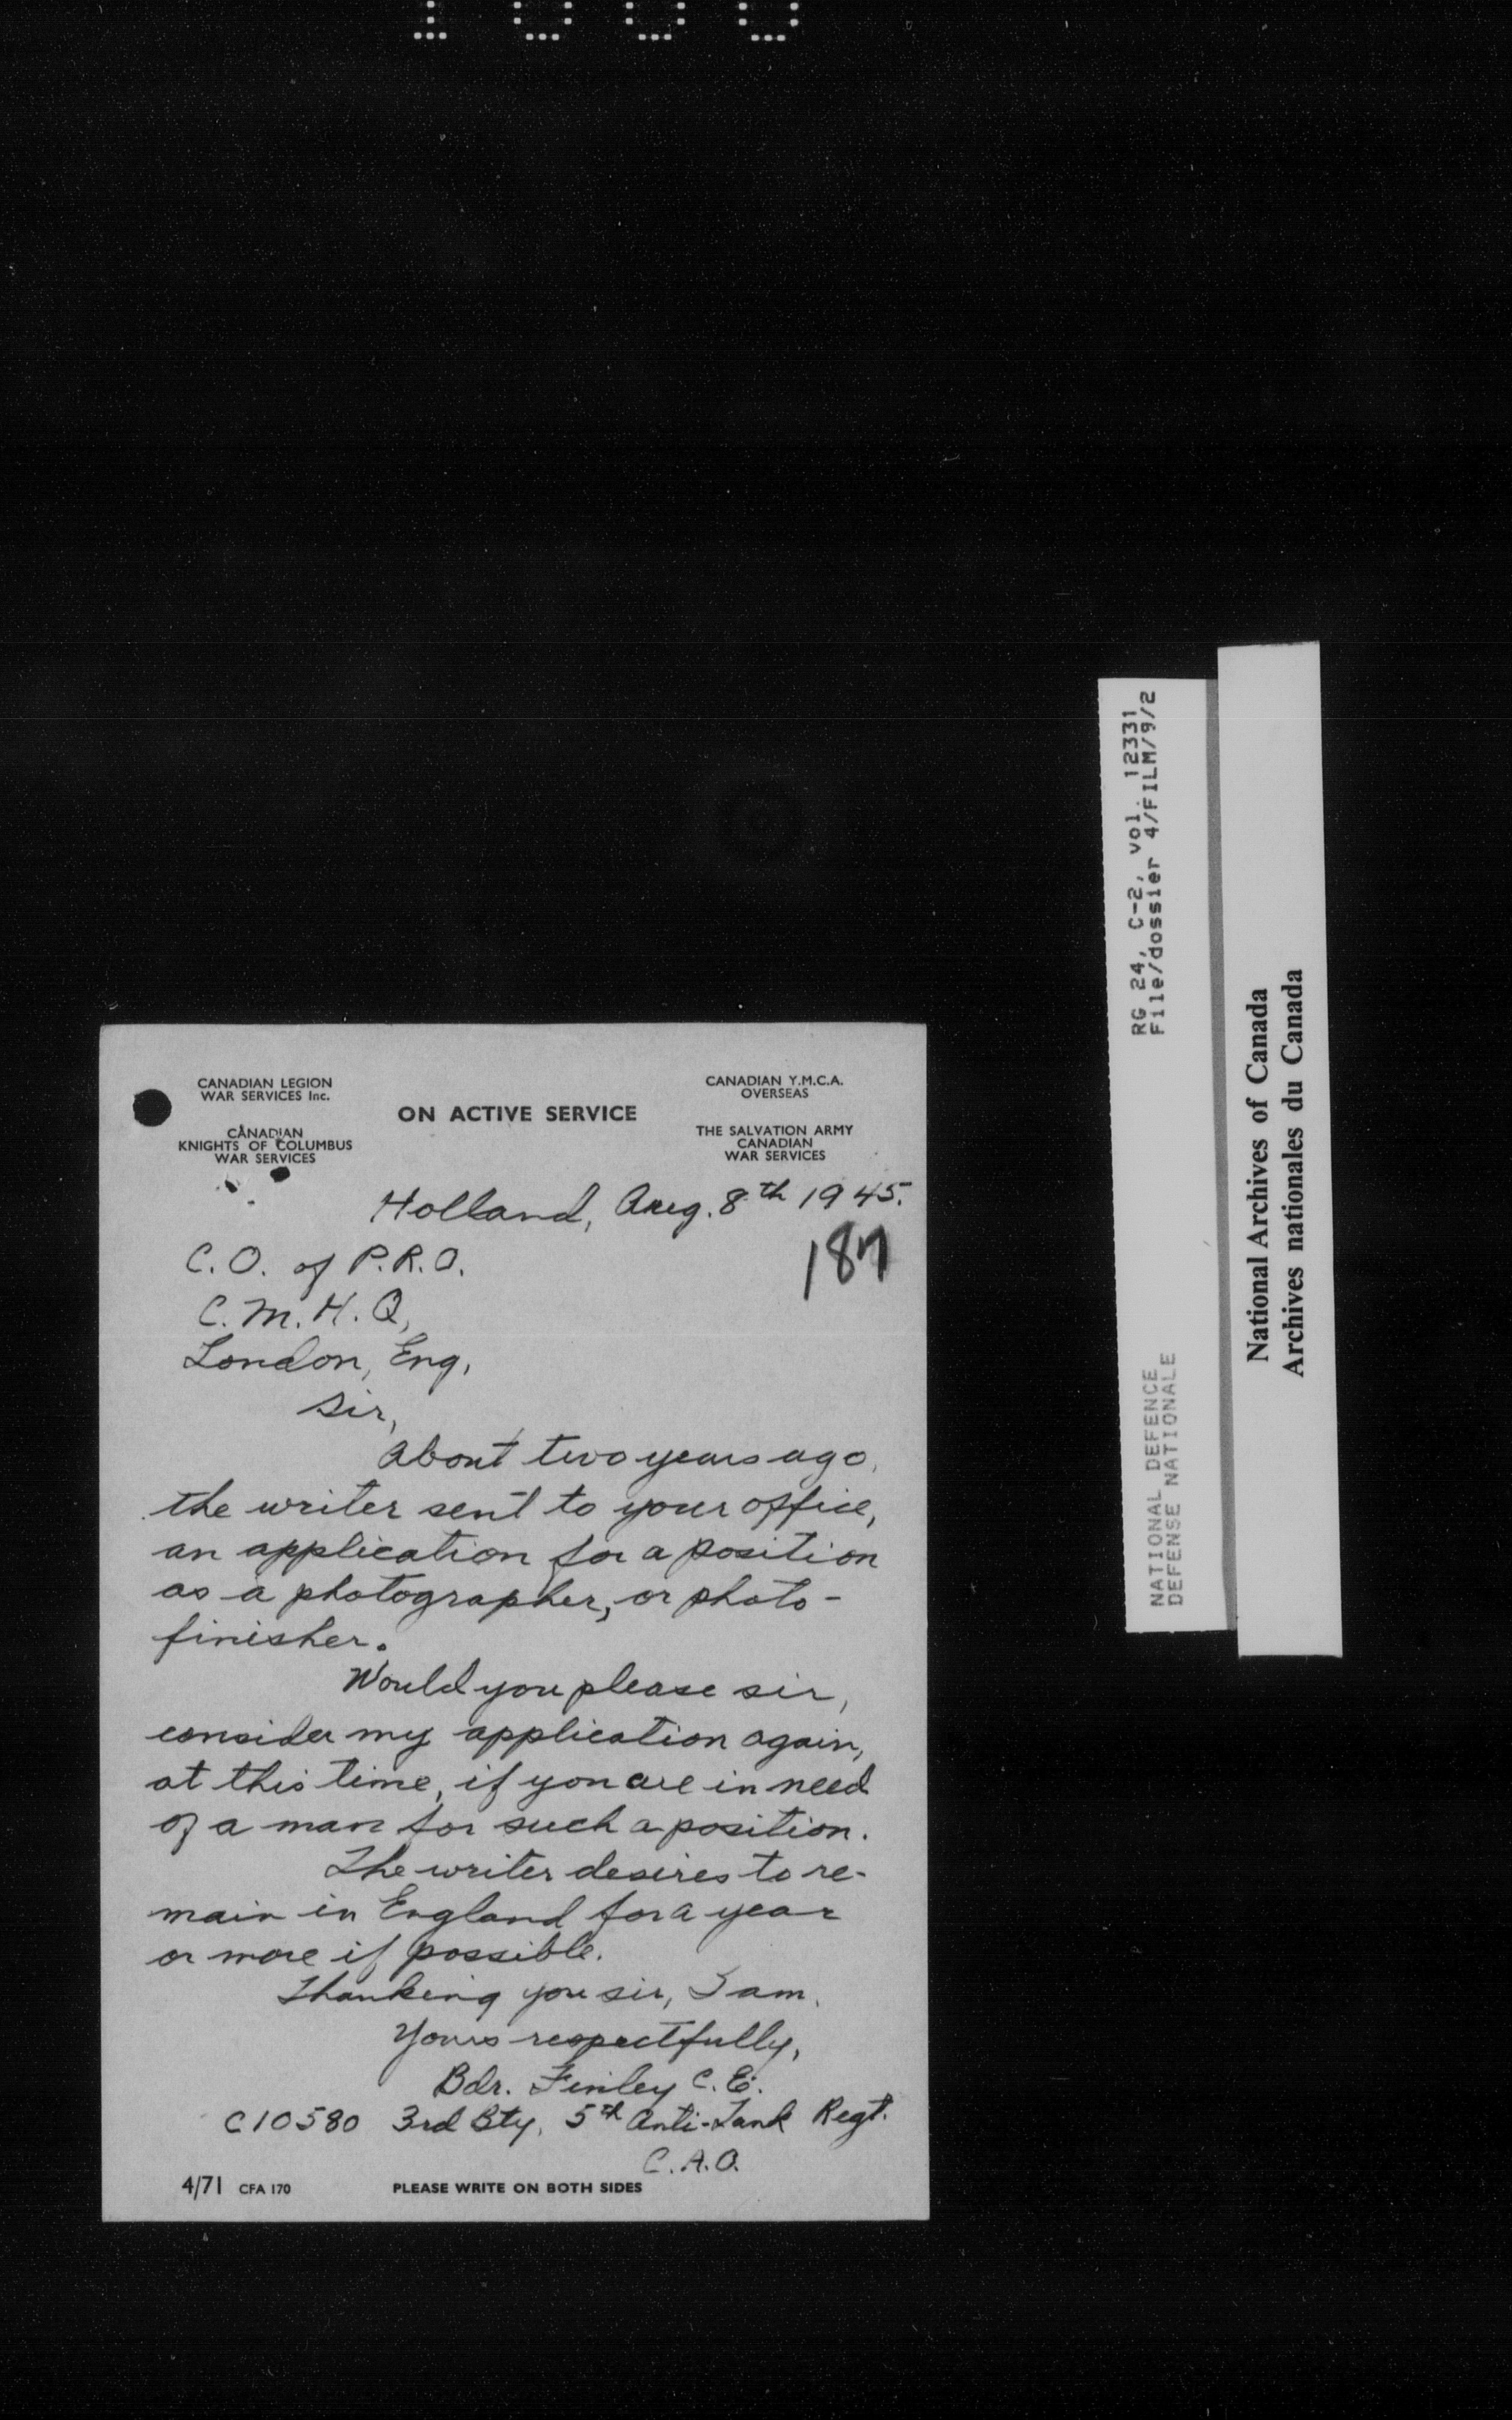 CANADIAN LEGION
WAR SERVICES Inc.
CANADIAN
KNIGHTS OF COLUMBUS
WAR SERVICES
ON ACTIVE SERVICE
CANADIAN Y.M.C.A.
OVERSEAS
THE SALVATION ARMY
CANADIAN
WAR SERVICES
Holland, Aug. 8th 1945.
187
C.O. of P.R.O.
C.M.H.Q,
London, Eng,
Sir,
About two years ago,
the writer sent to your office,
an application for a position
as a photographer, or photo-
finisher.
Would you please sir,
consider my application again,
at this time, if you are in need
of a man for such a position.
The writer desires to re-
main in England for a year
or more if possible.
Thanking you sir, I am.
Yours respectfully,
Bdr. Finley C.E.
C10580 3rd Bty, 5th Anti-Tank Regt.
C.A.O.
4/71 CFA 170
PLEASE WRITE ON BOTH SIDES
RG 24, C-2, vol. 12331
File/dossier 4/FILM/9/2
NATIONAL DEFENCE
DEFENSE NATIONALE
National Archives of Canada
Archives nationales du Canada